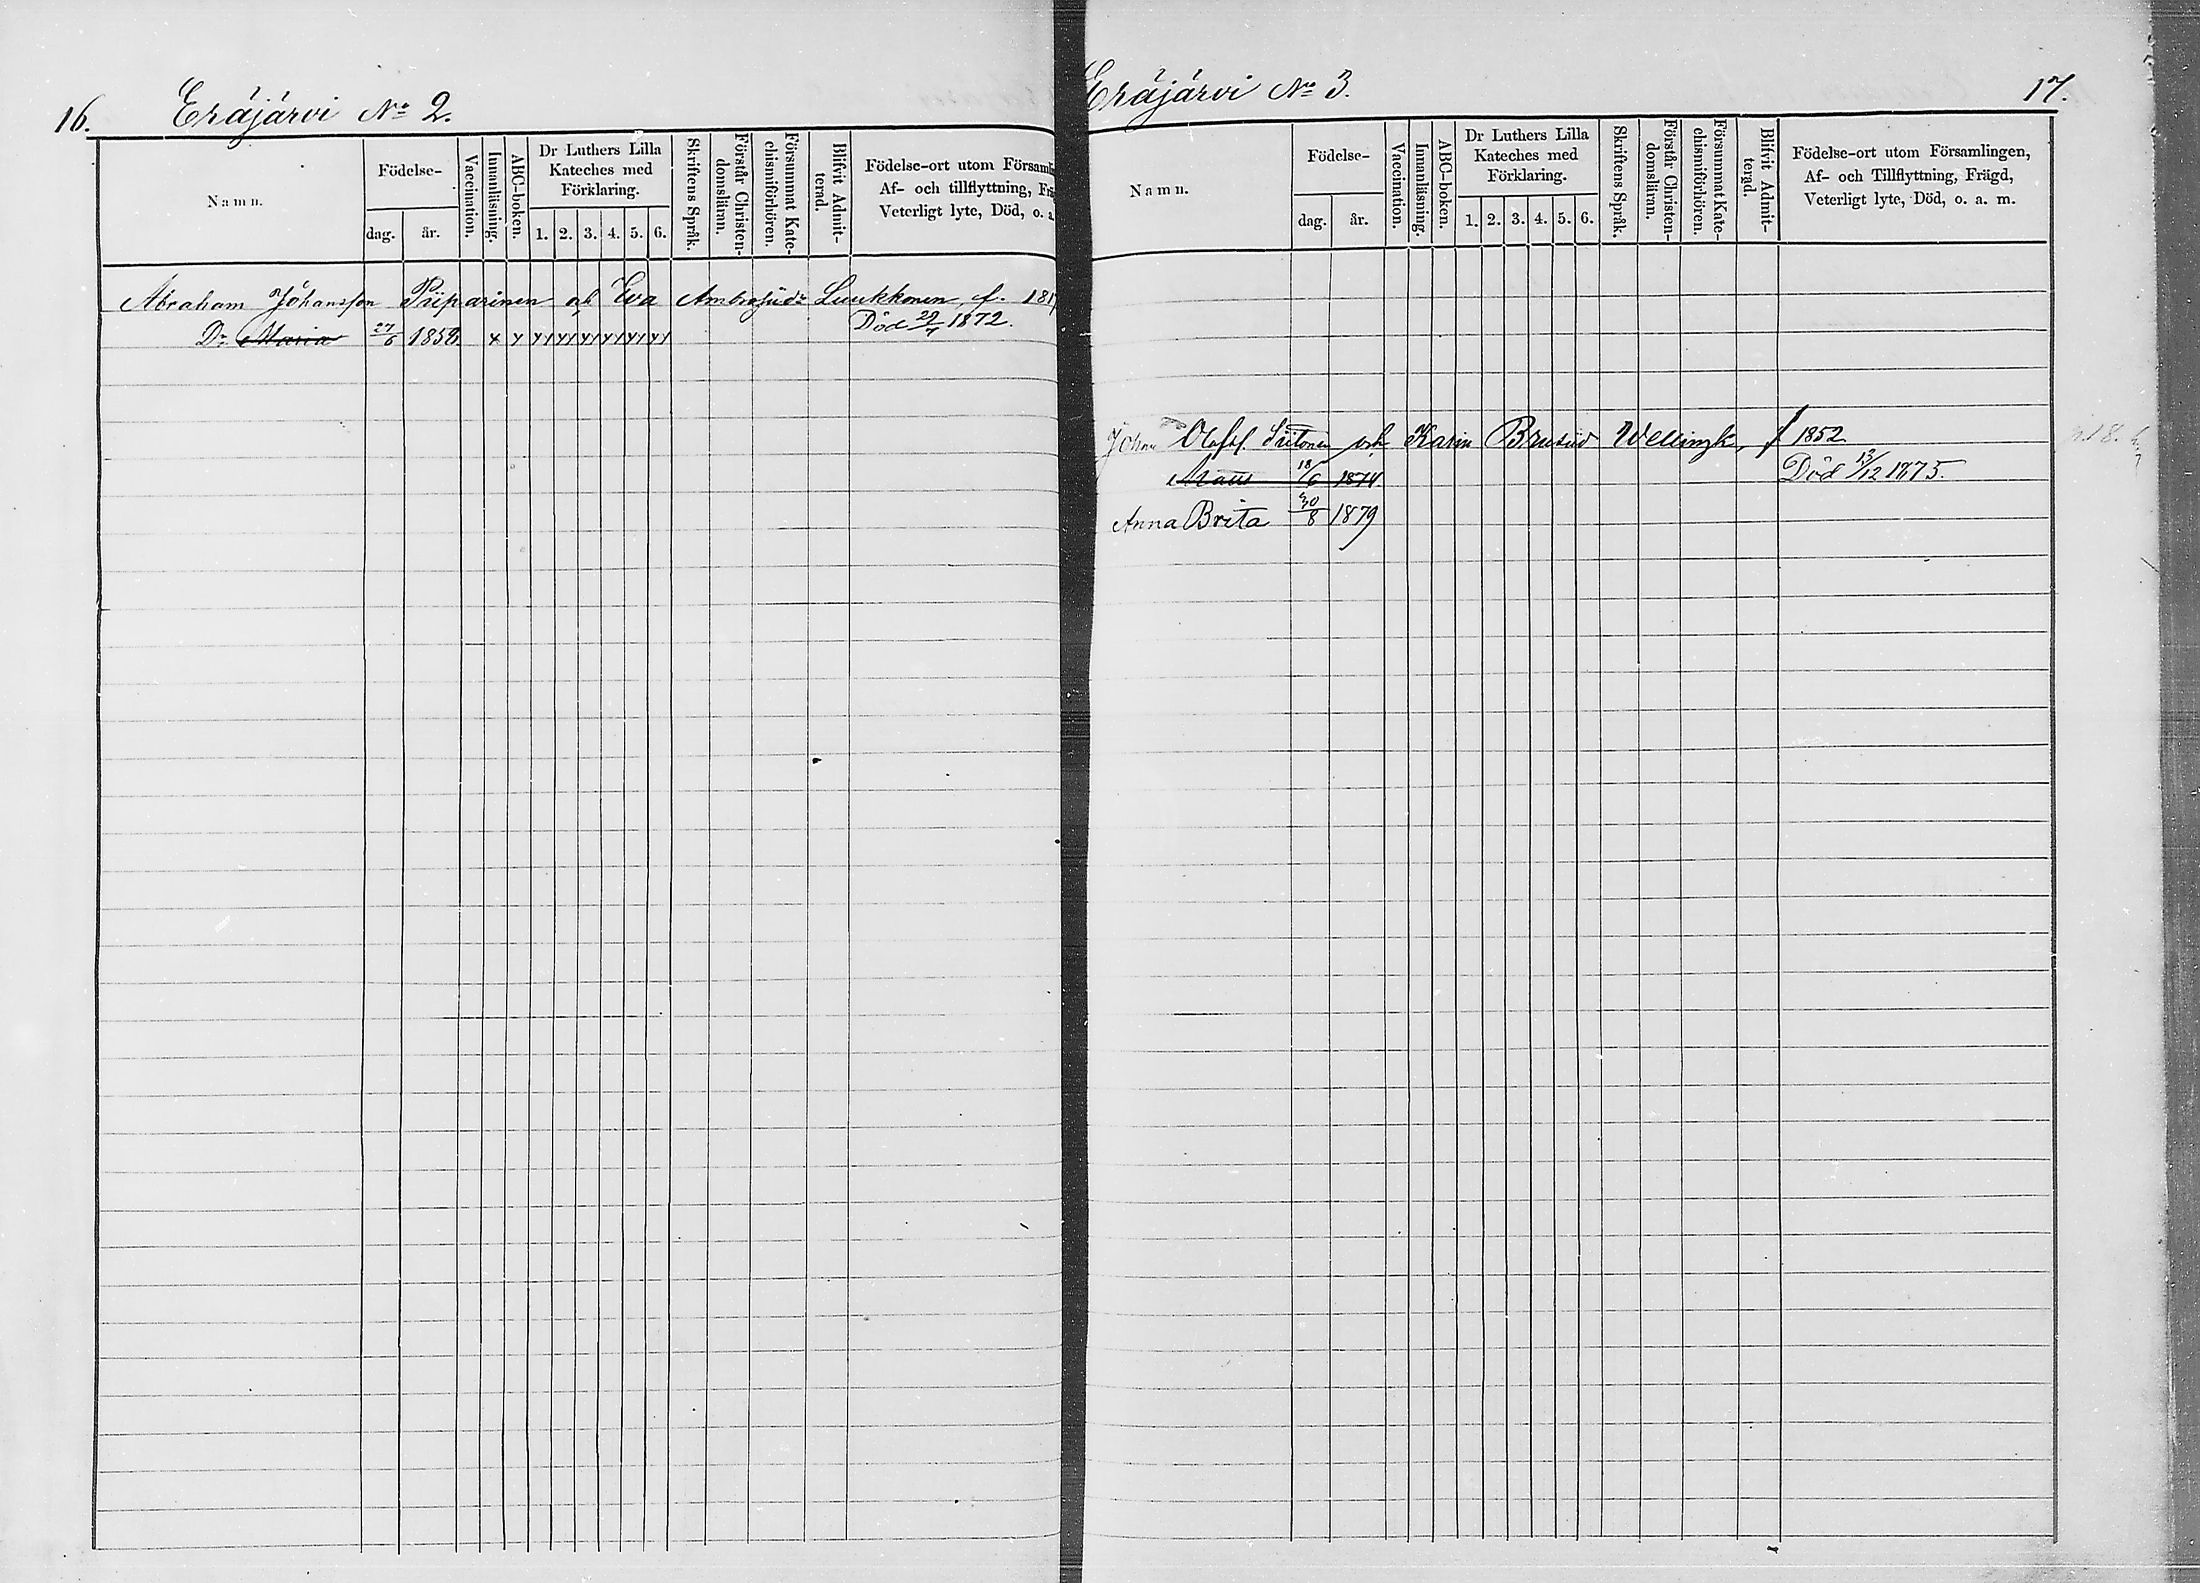 16.
Eräjärvi No 2.
Namn.
Födelse-
dag.
år.
Vaccination.
Innanläsning.
ABC-boken.
Dr Luthers Lilla
Kateches med
Förklaring.
1. 2. 3. 4. 5. 6.
Skriftens Språk.
Förstår Christen-
domsläran.
Försummat Kate-
chismiförhören.
Blifvit Admit-
terad.
Födelse-ort utom Församl
Af- och tillflyttning, Frä
Veterligt lyte, Död, o. a.
Abraham Johansson Piiparinen och Eva Ambrosiidr Luukkonen, f. 181
Död 29/7 1872.
Dr Maria 27/6 1858
Eräjärvi No 3.
17.
Namn.
Födelse-
dag.
år.
Vaccination.
Innanläsning.
ABC-boken.
Dr Luthers Lilla
Kateches med
Förklaring.
1. 2. 3. 4. 5. 6.
Skriftens Språk.
Förstår Christen-
domsläran.
Försummat Kate-
chismiförhören.
Blifvit Admit-
terad.
Födelse-ort utom Församlingen,
Af- och Tillflyttning, Frägd,
Veterligt lyte, Död, o. a. m.
Johan Olofsf. Siitonen och Karin f 1852
18/6 1874 Död 13/12 1875.
Anna Brita 30/8 1879